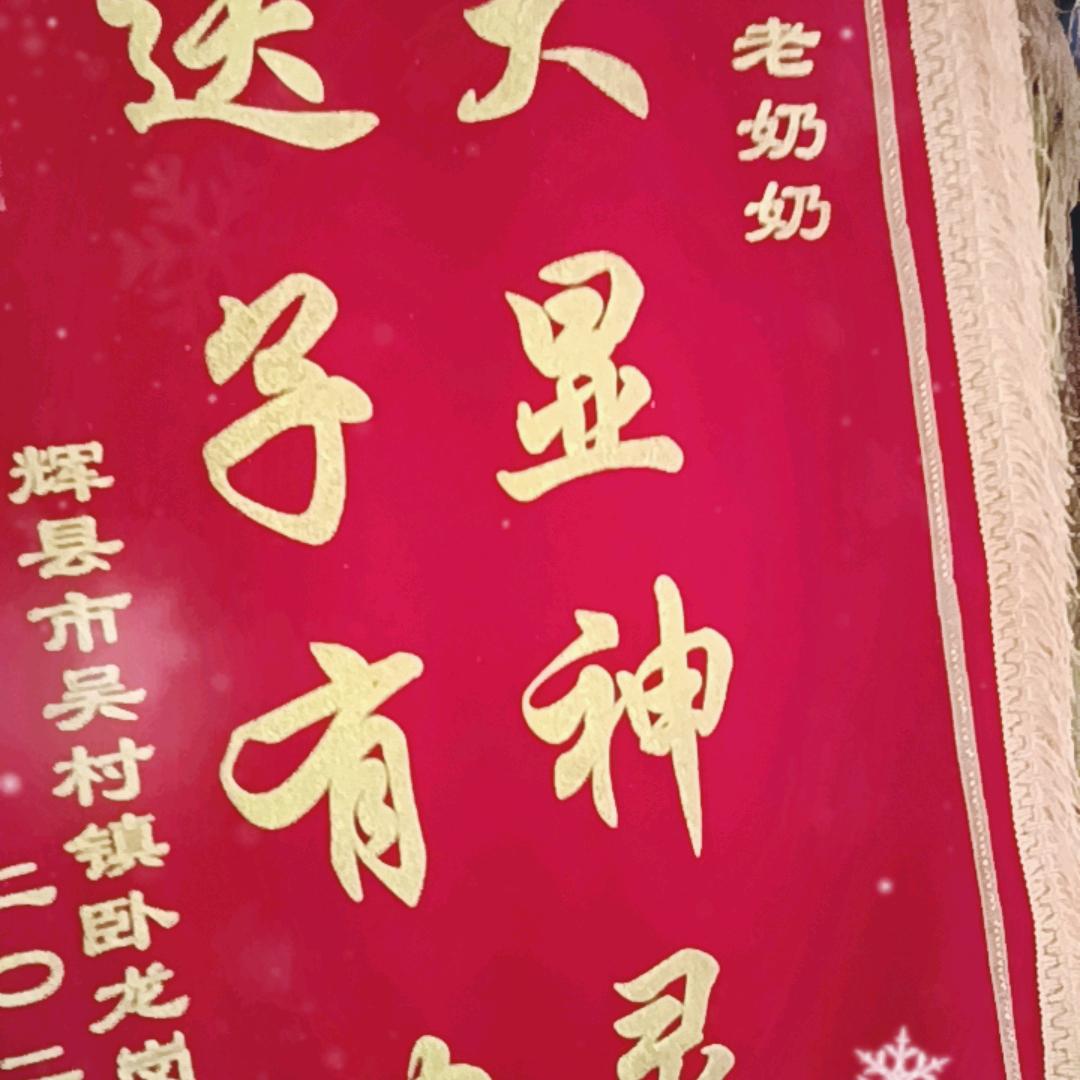 老奶奶
大显神灵
送子有
辉县市吴村镇卧龙岗
二〇二